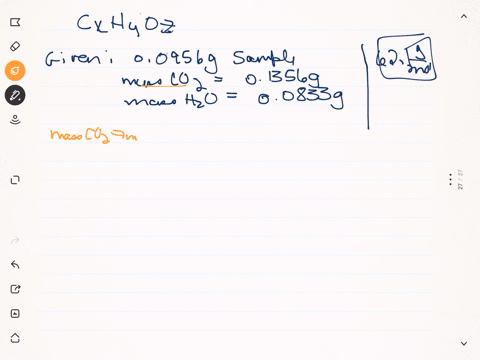 CxHyOz
Given: 0.0956g Sample
mass CO2 = 0.1356g
mass H2O = 0.0833g
62.1 g/mol
mass CO2 → m
27 / 27